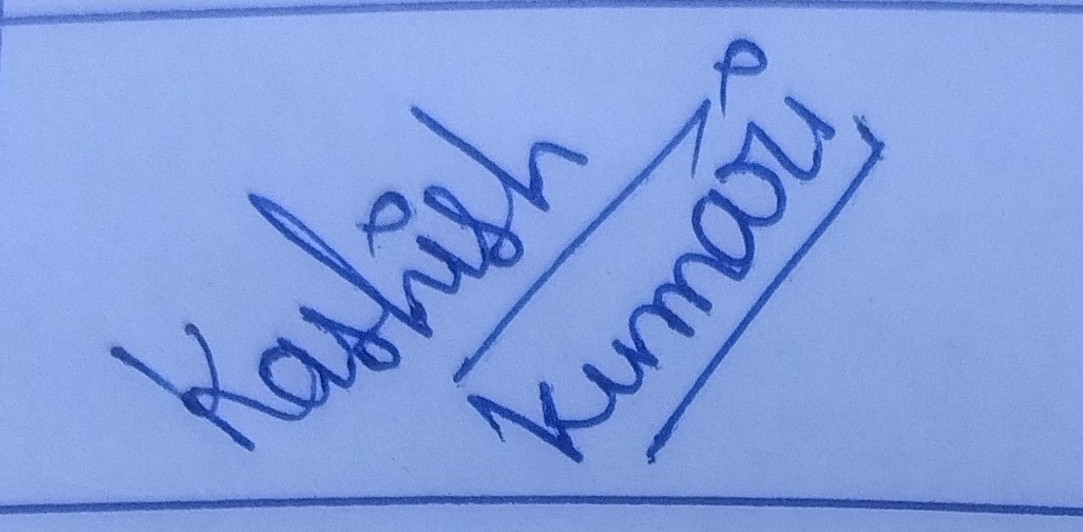 Kashish
Kumari